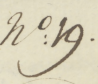 No: 19.